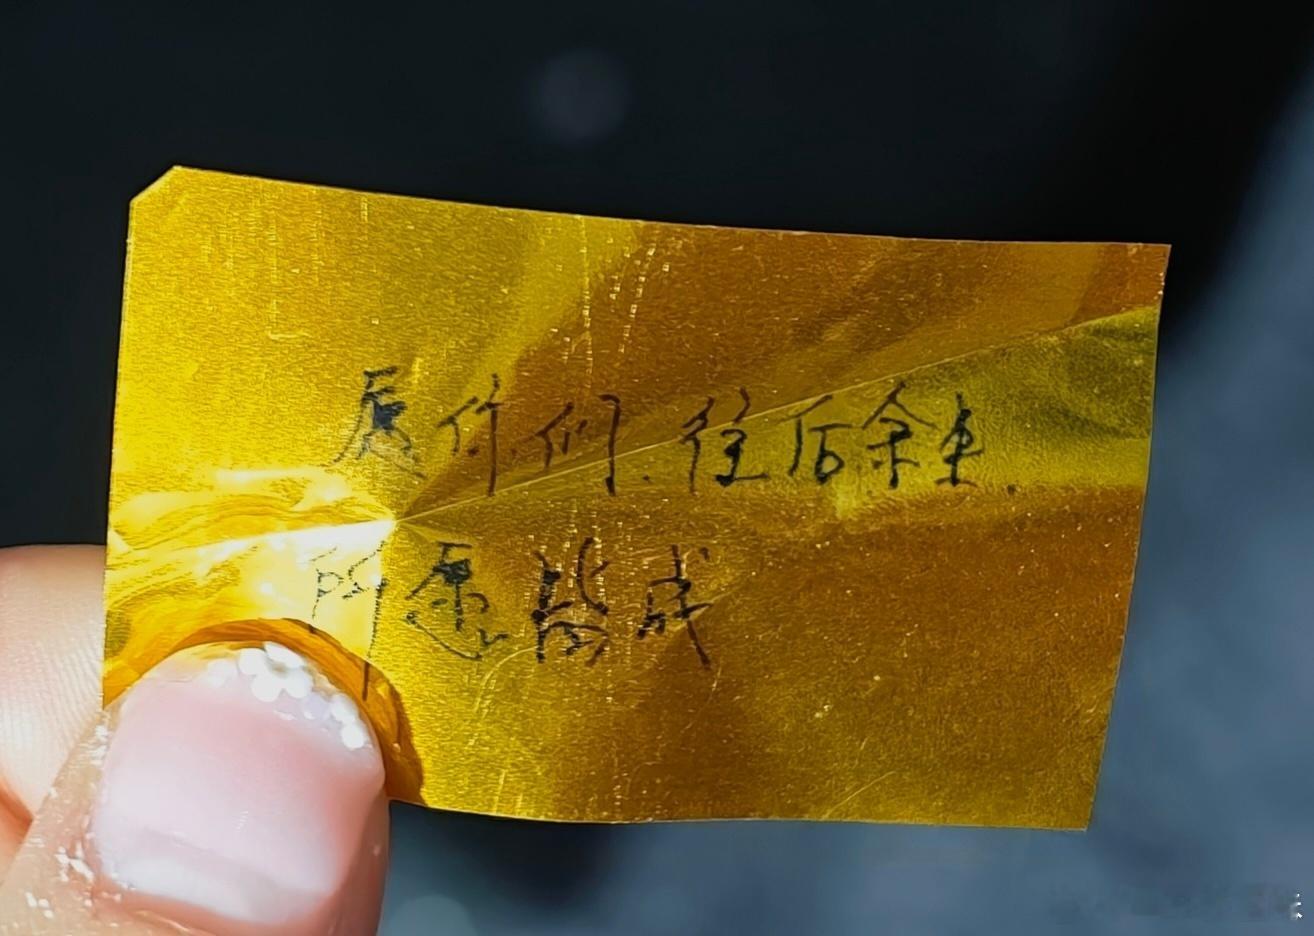 愿你们.往后余生.
所愿皆成